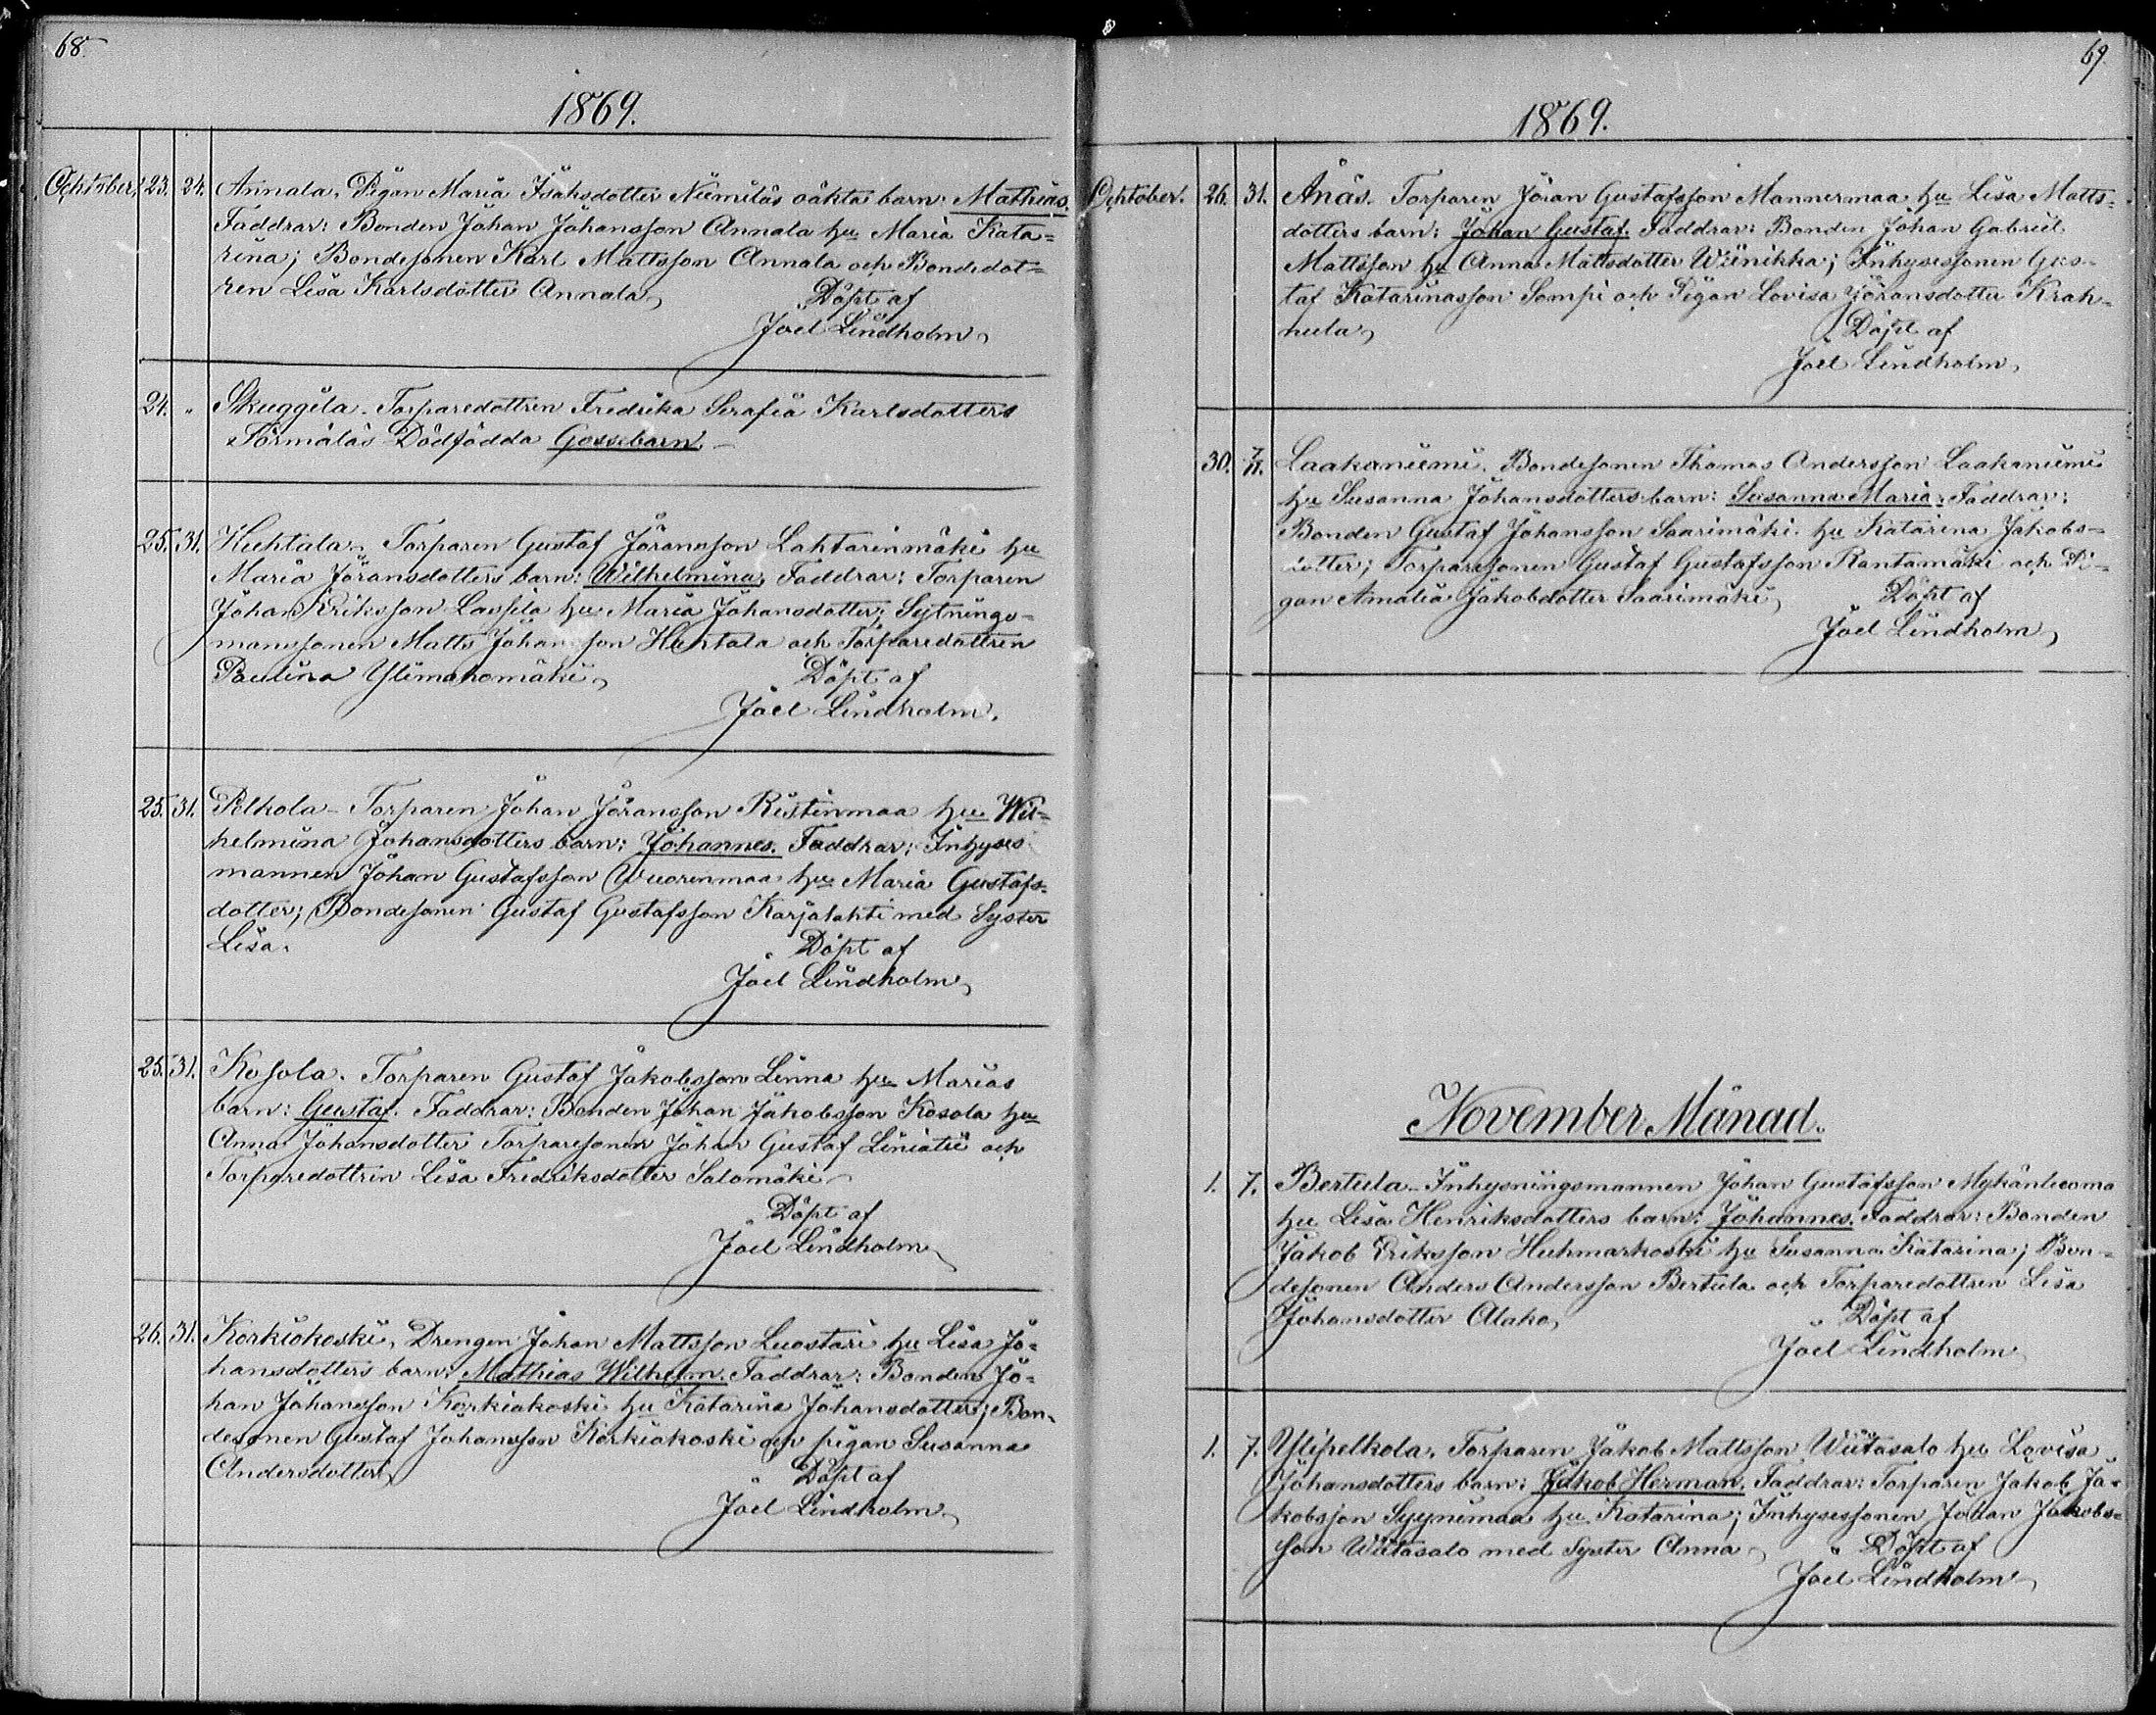 68.
1869.
October. 23. 24. Annala, Pigan Maria Isaksdotter Niemiläs oäkta barn: Mathias.
Faddrar: Bonden Johan Johansson Annala hu Maria Kata=
rina; Bondesonen Karl Mattsson Annala och Bondedot=
ren Lisa Karlsdotter Annala,
Döpt af
Joel Lindholm,
24. " Skuggila. Torparedottren Fredrika Serafia Karlsdotters
Sormäläs Dödfödda Gossebarn. –
25. 31. Huhtala, Torparen Gustaf Göransson Lahtarinmäki hu
Maria Göransdotters barn: Wilhelmina, Faddrar: Torparen
Johan Eriksson Lassila hu Maria Johansdotter; Sytnings=
manssonen Matts Johansson Huhtala och Torparedottren
Paulina Ylimahomäki,
Döpt af
Joel Lindholm.
25. 31. Pelkola – Torparen Johan Göransson Ristinmaa hu Wil=
helmina Johansdotters barn: Johannes. Faddrar: Inhyses
mannen Johan Gustafsson Wuorenmaa hu Maria Gustafs=
dotter; Bondesonen Gustaf Gustafsson Karjalahti med Syster
Lisa.
Döpt af
Joel Lindholm,
25. 31. Kosola. Torparen Gustaf Jakobsson Linna hu Marias
barn: Gustaf. Faddrar: Bonden Johan Jakobsson Kosola hu
Anna Johansdotter Torparesonen Johan Gustaf Liniatii och
Torparedottren Lisa Fredriksdotter Salomäki –
Döpt af
Joel Lindholm
26. 31. Korkiakoski, Drengen Johan Mattsson Luostari hu Lisa Jo=
hansdotters barn: Mathias Wilhelm. Faddrar: Bonden Jo=
han Johansson Korkiakoski hu Katarina Johansdotter; Bon=
desonen Gustaf Johansson Korkiakoski och pigan Susanna
Andersdotter,
Döpt af
Joel Lindholm
69.
1869.
October. 26. 31. Anäs. Torparen Jöran Gustafsson Mannermaa hu Lisa Matts=
dotters barn: Johan Gustaf. Faddrar: Bonden Johan Gabriel
Mattsson hu Anna Mattsdotter Wiinikka; Inhysessonen Gus=
taf Katarinasson Sompi och Pigan Lovisa Jöransdotter Krah=
nula,
Döpt af
Joel Lindholm,
30. 7/11. Laakaniemi. Bondesonen Thomas Andersson Laakaniemi
hu Susanna Johansdotters barn: Susanna Maria. Faddrar:
Bonden Gustaf Johansson Saarimäki hu Katarina Jakobs=
dotter; Torparesonen Gustaf Gustafsson Rantamäki och Pi=
gan Amalia Jakobdotter Saarimäki,
Döpt af
Joel Lindholm,
November Månad.
1. 7. Bertula – Inhysningsmannen Johan Gustafsson Mykänluoma
hu Lisa Henriksdotters barn: Johannes. Faddrar: Bonden
Jakob Eriksson Huhmarkoski hu Susanna Katarina; Bon=
desonen Anders Andersson Bertula och Torparedottren Lisa
Johansdotter Alaho,
Döpt af
Joel Lindholm
1. 7. Ylipelkola. Torparen Jakob Mattsson Wiitasalo hu Lovisa
Johansdotters barn: Jakob Herman. Faddrar: Torparen Jakob Ja=
kobsson Syynimaa hu Katarina; Inhysessonen Johan Jakobs=
son Wiitasalo med Syster Anna –
Döpt af
Joel Lindholm